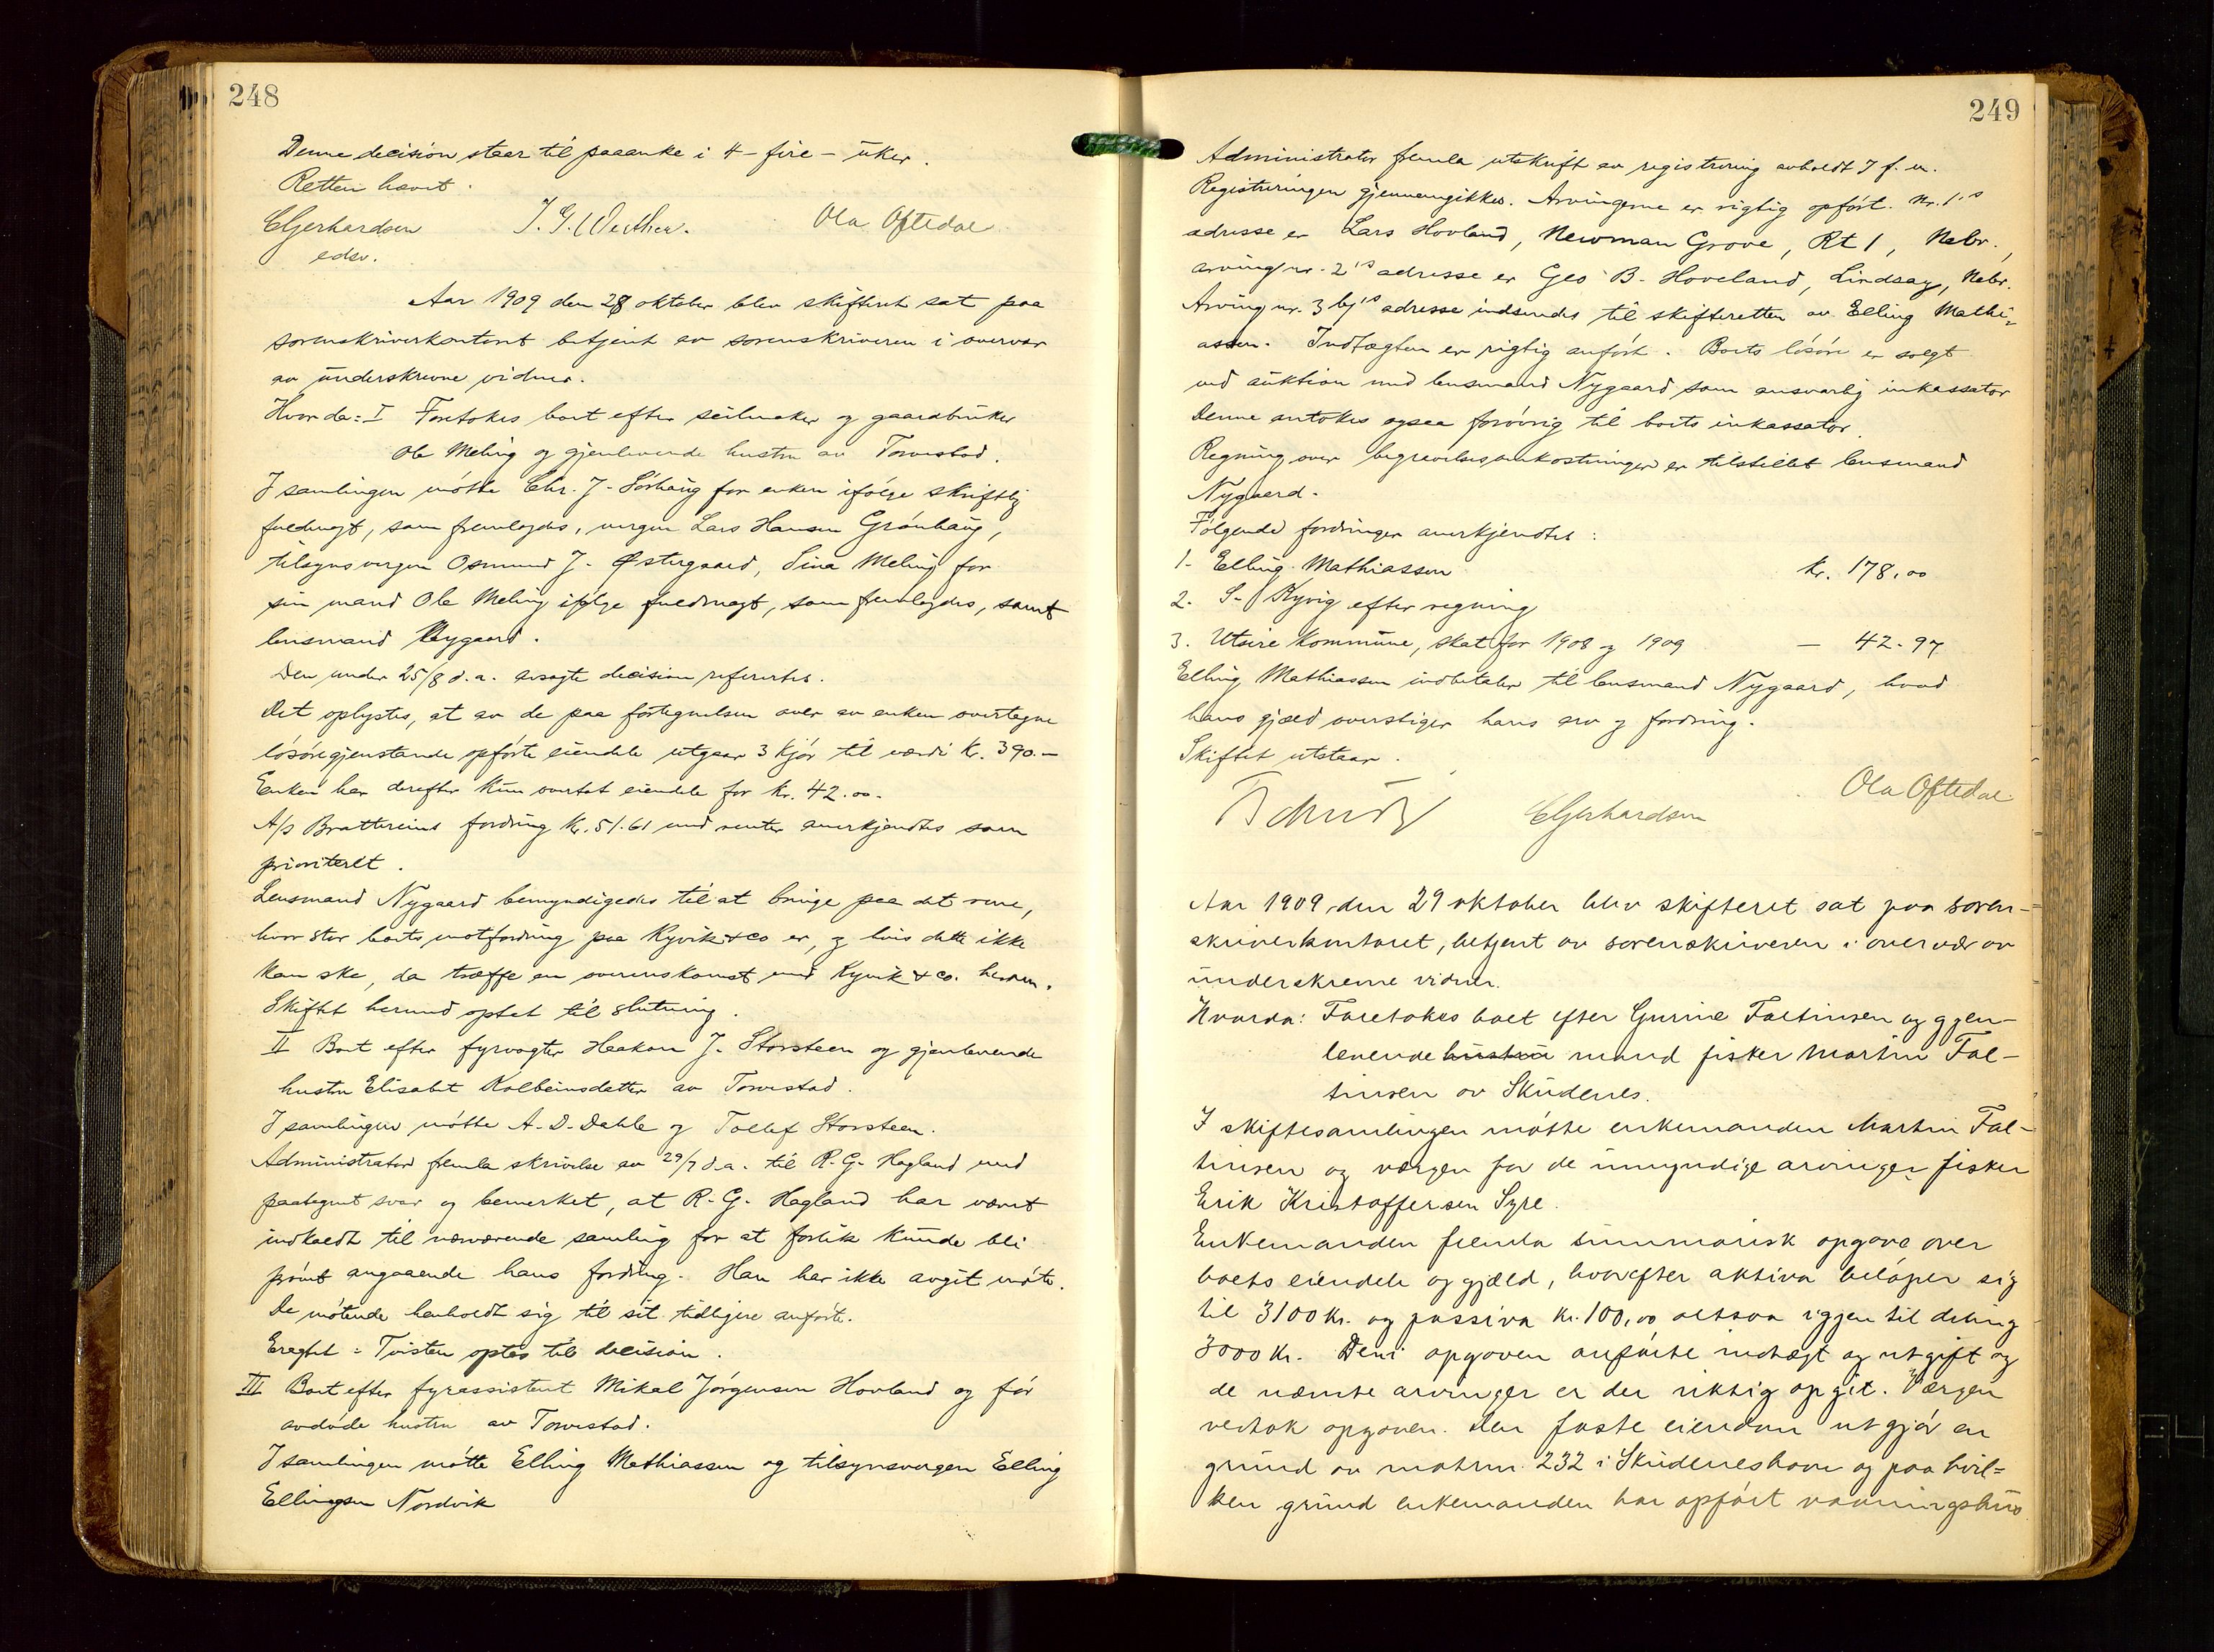 248
Denne decision staar til paaanke i 4 - fire - uker.
Retten hævet.
CGjerhardsen J. G. Ola Oftedal
edsv.
Aar 1909 den 28 oktober blev skifteret sat paa
sorenskriverkontoret betjent av sorenskriveren i overvær
av underskrevne vidner.
Hvorda: I Foretokes boet efter seilmaker og gaardbruker
Ole Meling og gjenlevende hustru av Torvestad.
I samlingen møtte Chr. J. Sørhaug for enken ifølge skriftlig
fuldmagt, som fremlagdes, vergen Lars Hansen Grønhaug,
tilsynsvergen Osmund J. Østergaard, Sina Meling for
sin mand Ole Meling ifølge fuldmagt, som fremlagdes, samt
lensmand Nygaard.
Den under 25/8 d.a. avsagte decision refereertes.
Det oplystes, at av de paa fortegnelsen over av enken overtagne
løsøregjenstande opførte eiendele utgaar 3 kjør til værdi kr. 390.-
Enken har derefter kun overtat eiendele for kr. 42.00.
A/s Brattereins fordring kr. 51.61 med renter anerkjendtes som
prioritert.
Lensmand Nygaard bemyndigedes til at bringe paa det rene,
hvor stor boets motfordring paa Kyvik & co er, og hvis dette ikke
kan ske, da træffe en overenskomst med Kyvik & co. herom.
Skiftet herved optat til slutning.
II Boet efter fyrvogter Haakon J. Storsteen og gjenlevende
hustru Elisabet Kolbeinsdatter av Torvestad.
I samlingen møtte A. D. Dahle og Tollef Storsteen.
Administrator fremla skrivelse av 29/7 d.a. til R. G. Hagland med
paategnet svar og bemerket, at R. G. Hagland har været
indkaldt til nærværende samling for at forlik kunde bli
prøvet angaaende hans fordring. Han har ikke avgit møte.
De møtende henholdt sig til sit tidligere anførte.
Eragtet: Tvisten optas til decision.
III Boet efter fyrassistent Mikal Jørgensen Hovland og før
avdøde hustru av Torvestad.
I samlingen møtte Elling Mathiassen og tilsynsvergen Elling
Ellingsen Nordvik
249
Administrator fremla utskrift av registrering avholdt 7 f. m.
Registreringen gjennemgikkes. Arvingerne er rigtig opført. Nr. 1's
adresse er Lars Hovland, Newman Grove, Rt 1, Nebr.,
arving nr. 2's adresse er Geo B. Hoveland, Lindsay, Nebr.
Arving nr. 3 b's adresse indsendes til skifteretten av Elling Mathi=
assen. Indtægten er rigtig anført. Boets løsøre er solgt
ved auktion med lensmand Nygaard som ansvarlig inkassator
Denne antokes ogsaa forøvrig til boets inkassator.
Regning over begravelsesomkostninger er tilstillet lensmand
Nygaard.
Følgende fordringer anerkjendtes:
1. Elling Mathiassen kr. 178,00
2. S. Kyvig efter regning
3. Utsire kommune, skat for 1908 og 1909 — 42.97
Elling Mathiassen indbetaler til lensmand Nygaard, hvad
hans gjæld overstiger hans arv og fordring.
Skiftet utstaar.
CGjerhardsen Ola Oftedal
Aar 1909, den 29 oktober blev skifteret sat paa soren-
skriverkontoret, betjent av sorenskriveren i overvær av
underskrevne vidner.
Hvorda: Foretokes boet efter Gurine Faltinsen og gjen-
levende hustru mand fisker Martin Fal-
tinsen av Skudenes.
I skiftesamlingen møtte enkemanden Martin Fal-
tinsen og vergen for de umyndige arvinger fisker
Erik Kristoffersen Syre.
Enkemanden fremla summarisk opgave over
boets eiendele og gjæld, hvorefter aktiva beløper sig
til 3100 kr. og passiva kr. 100,00 altsaa igjen til deling
3000 kr. Den i opgaven anførte indtægt og utgift og
de nævnte arvinger er der riktig opgit. Vergen
vedtok opgaven. Den faste eiendom utgjør en
grund av matrnr. 232 i Skudeneshavn og paa hvil=
ken grund enkemanden har opført vaaningshus